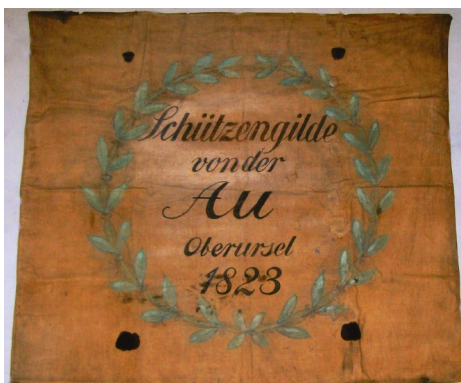 Schützengilde
von der
Au
Oberursel
1823